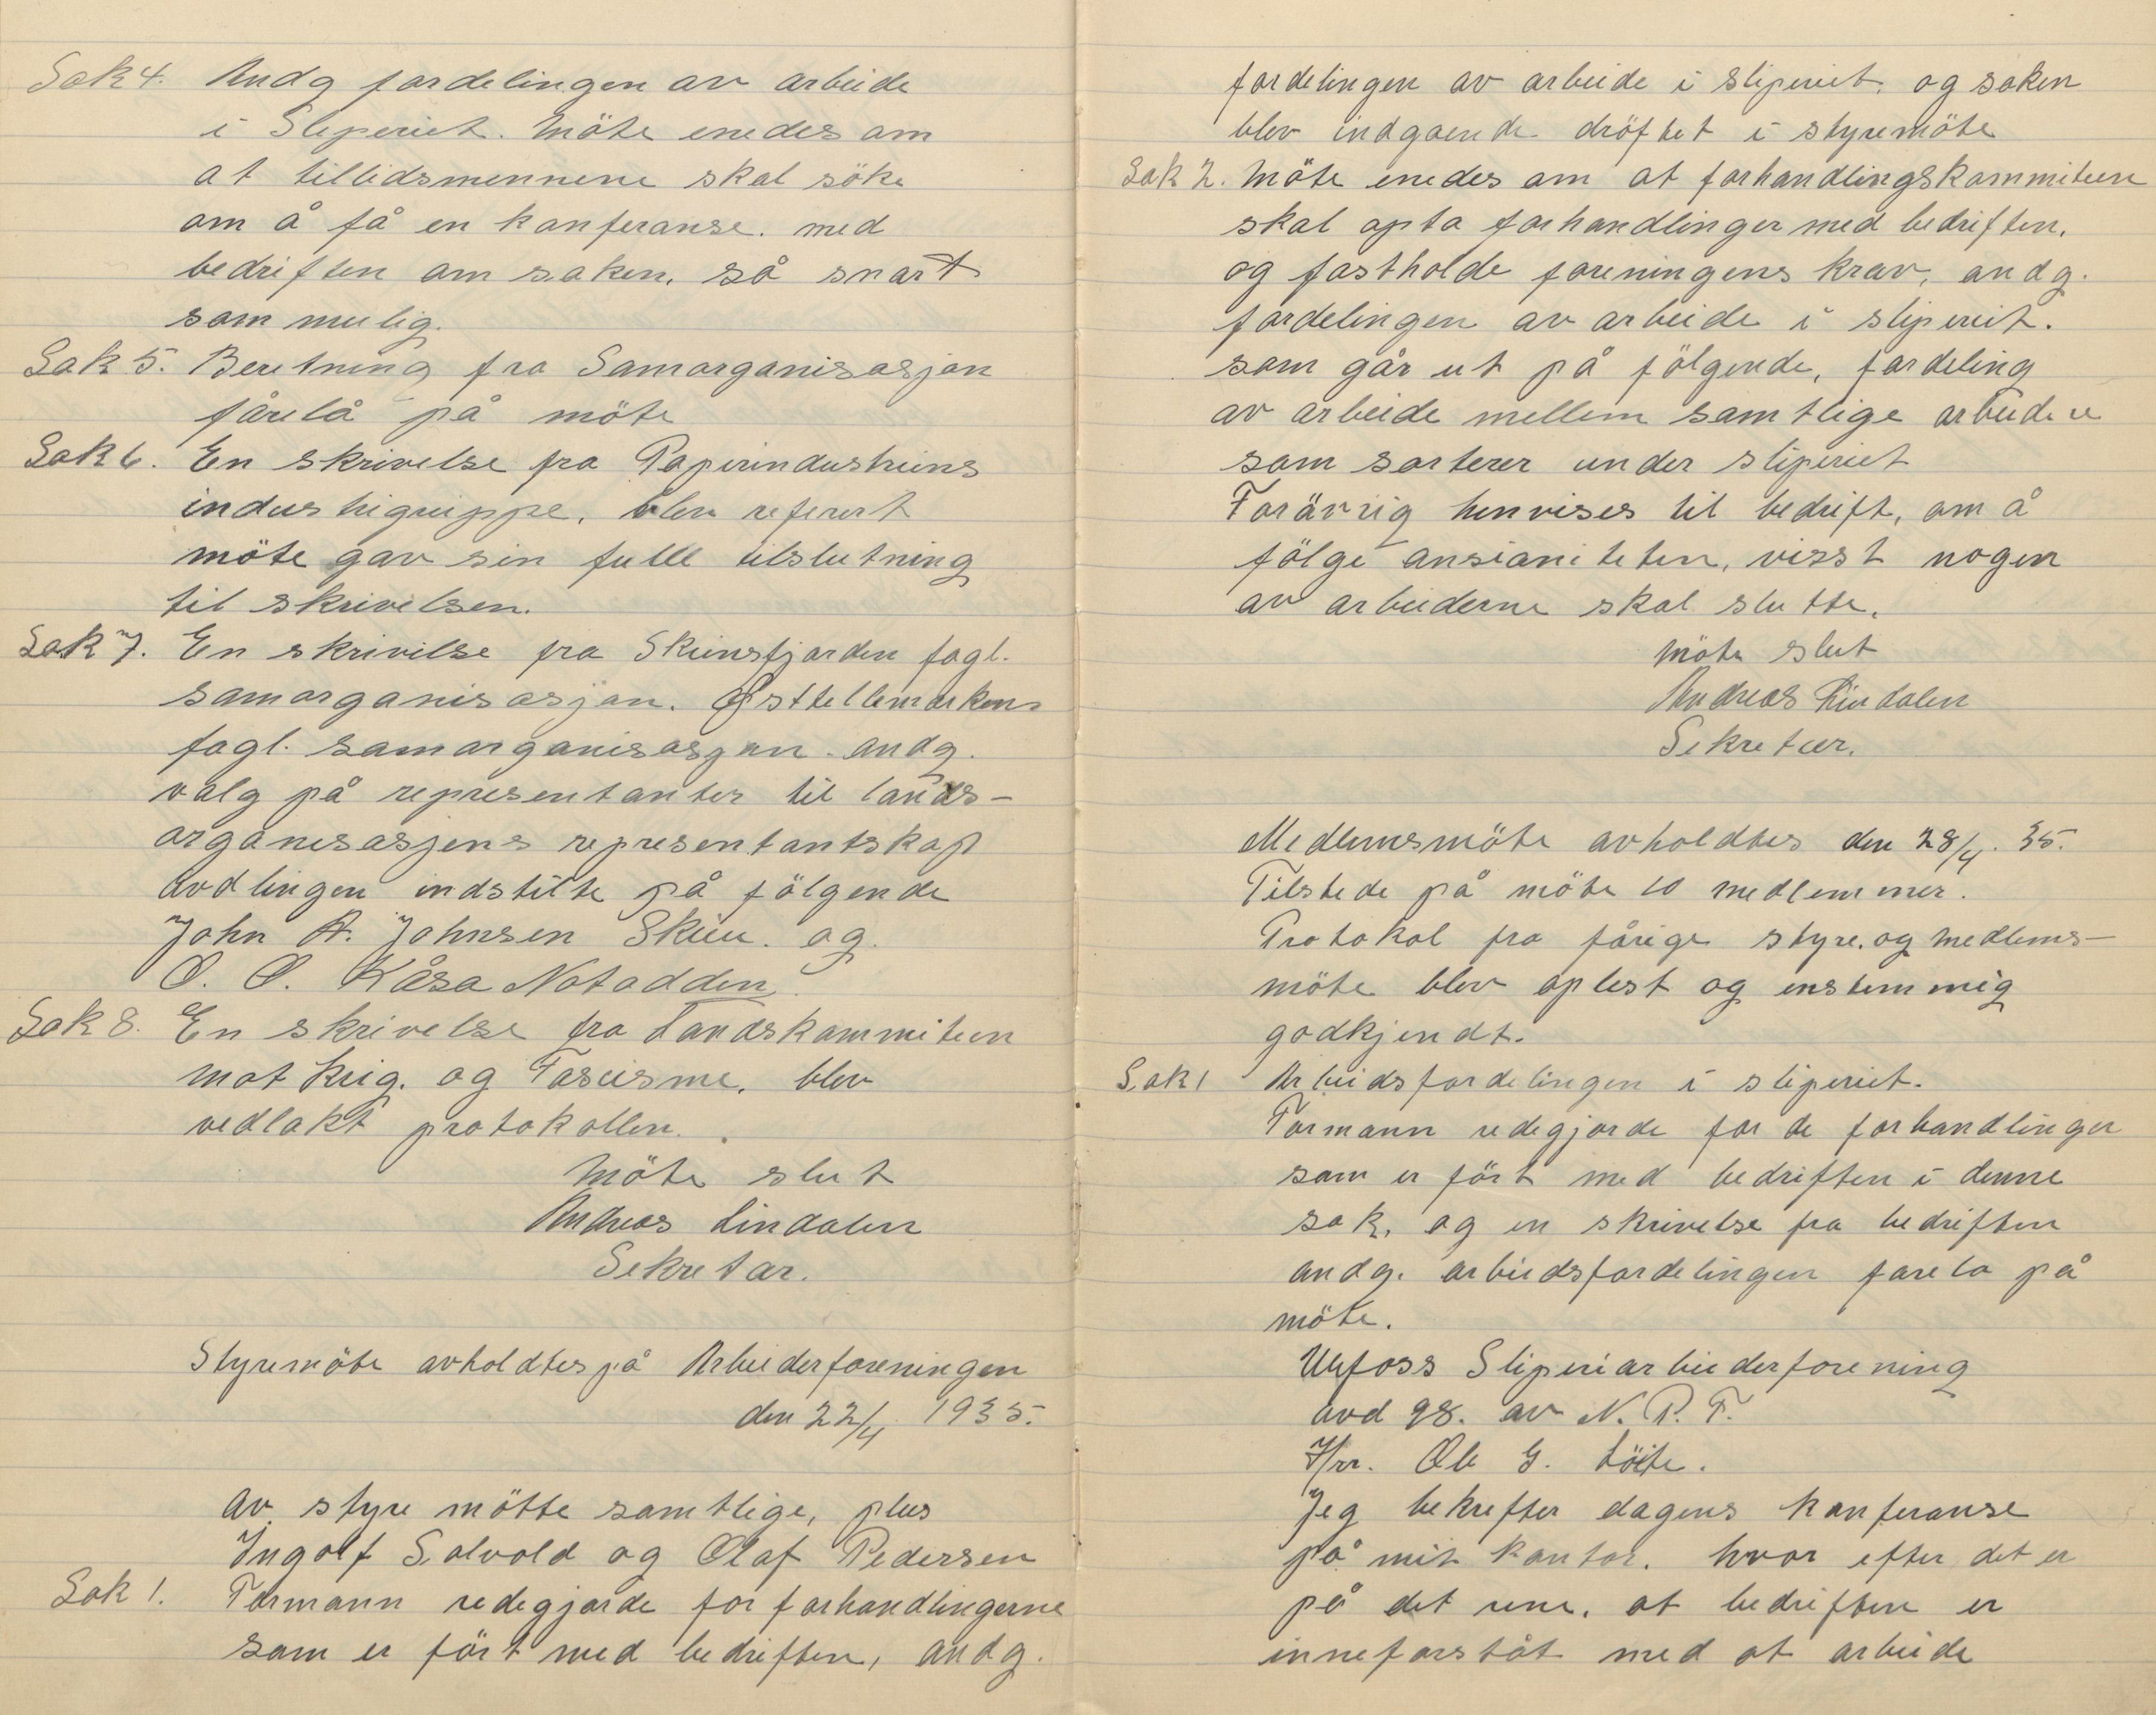 Sak 4. Andg fordelingen av arbeide
i Sliperiet. Möte enedes om
at tillidsmennene skal söke
om å få en konferanse. med
bedriften om saken, så snart
som mulig.
Sak 5. Beretning fra Samorganisasjon
förelå på möte
Sak 6. En skrivelse fra Papirindustriens
industrigruppe, blev referert
möte gav sin fulle tilslutning
til skrivelsen.
Sak 7. En skrivelse fra Skiensfjorden fagl.
samorganisasjon. Östtellemarkens
fagl. samorganisasjon. andg.
valg på representanter til lands-
organisasjens representantskap
avdlingen indstilte på fölgende
John A. Johnsen Skien. og.
O. O. Kåsa Notodden.
Sak 8. En skrivelse fra Landskommiteen
mot krig. og Fascisme. blev
vedlakt protokollen.
Möte slut
Andreas Lindalen
Sekretar.
Styremöte avholdtes på Arbeiderforeningen
den 22/4 1935.
Av styre mötte samtlige, plus
Ingolf Solvold og Olaf Pedersen
Sak 1. Formann redegjorde for forhandlingerne
som er fört med bedriften, andg.
fordelingen av arbeide i sliperiet. og saken
blev indgaende dröftet i styremöte
Sak 2. Möte enedes om at forhandlingskommiteen
skal opta forhandlinger med bedriften.
og fastholde foreningens krav, andg.
fordelingen av arbeide i sliperiet.
som går ut på fölgende, fordeling
av arbeide mellem samtlige arbeidere
som sorterer under sliperiet
Forövrig henvises til bedrift, om å
fölge ansianiteten, visst nogen
av arbeiderne skal slutte.
Möte slut
Andreas Lindalen
Sekretær.
Medlemsmöte avholdtes den 28/4. 35.
Tilstede på möte 10 medlemmer.
Protokol fra förige styre. og medlems-
möte blev oplest og enstemmig
godkjendt.
Sak 1 Arbeidsfordelingen i sliperiet.
Formann redegjorde for de forhandlinger
som er fört med bedriften i denne
sak, og en skrivelse fra bedriften
andg. arbeidsfordelingen forela på
möte.
Ulefoss Sliperiarbeiderforening
avd 98. av N. P. F.
Hrr. Ole G. Löite.
Jeg bekrefter dagens konferanse
på mit kontor. hvor efter det er
på det rene, at bedriften er
inneforståt med at arbeide